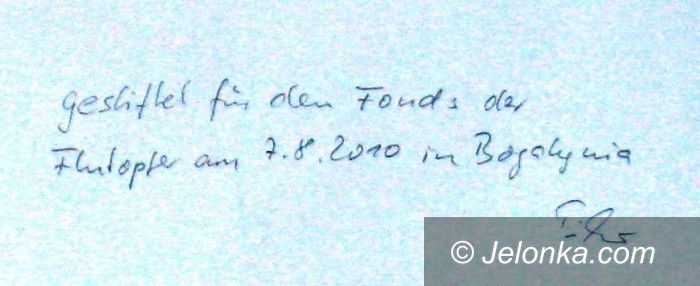 gestiftet für den Fonds der
Flutopfer am 7.8.2010 in Bogatynia
© Jelonka.com